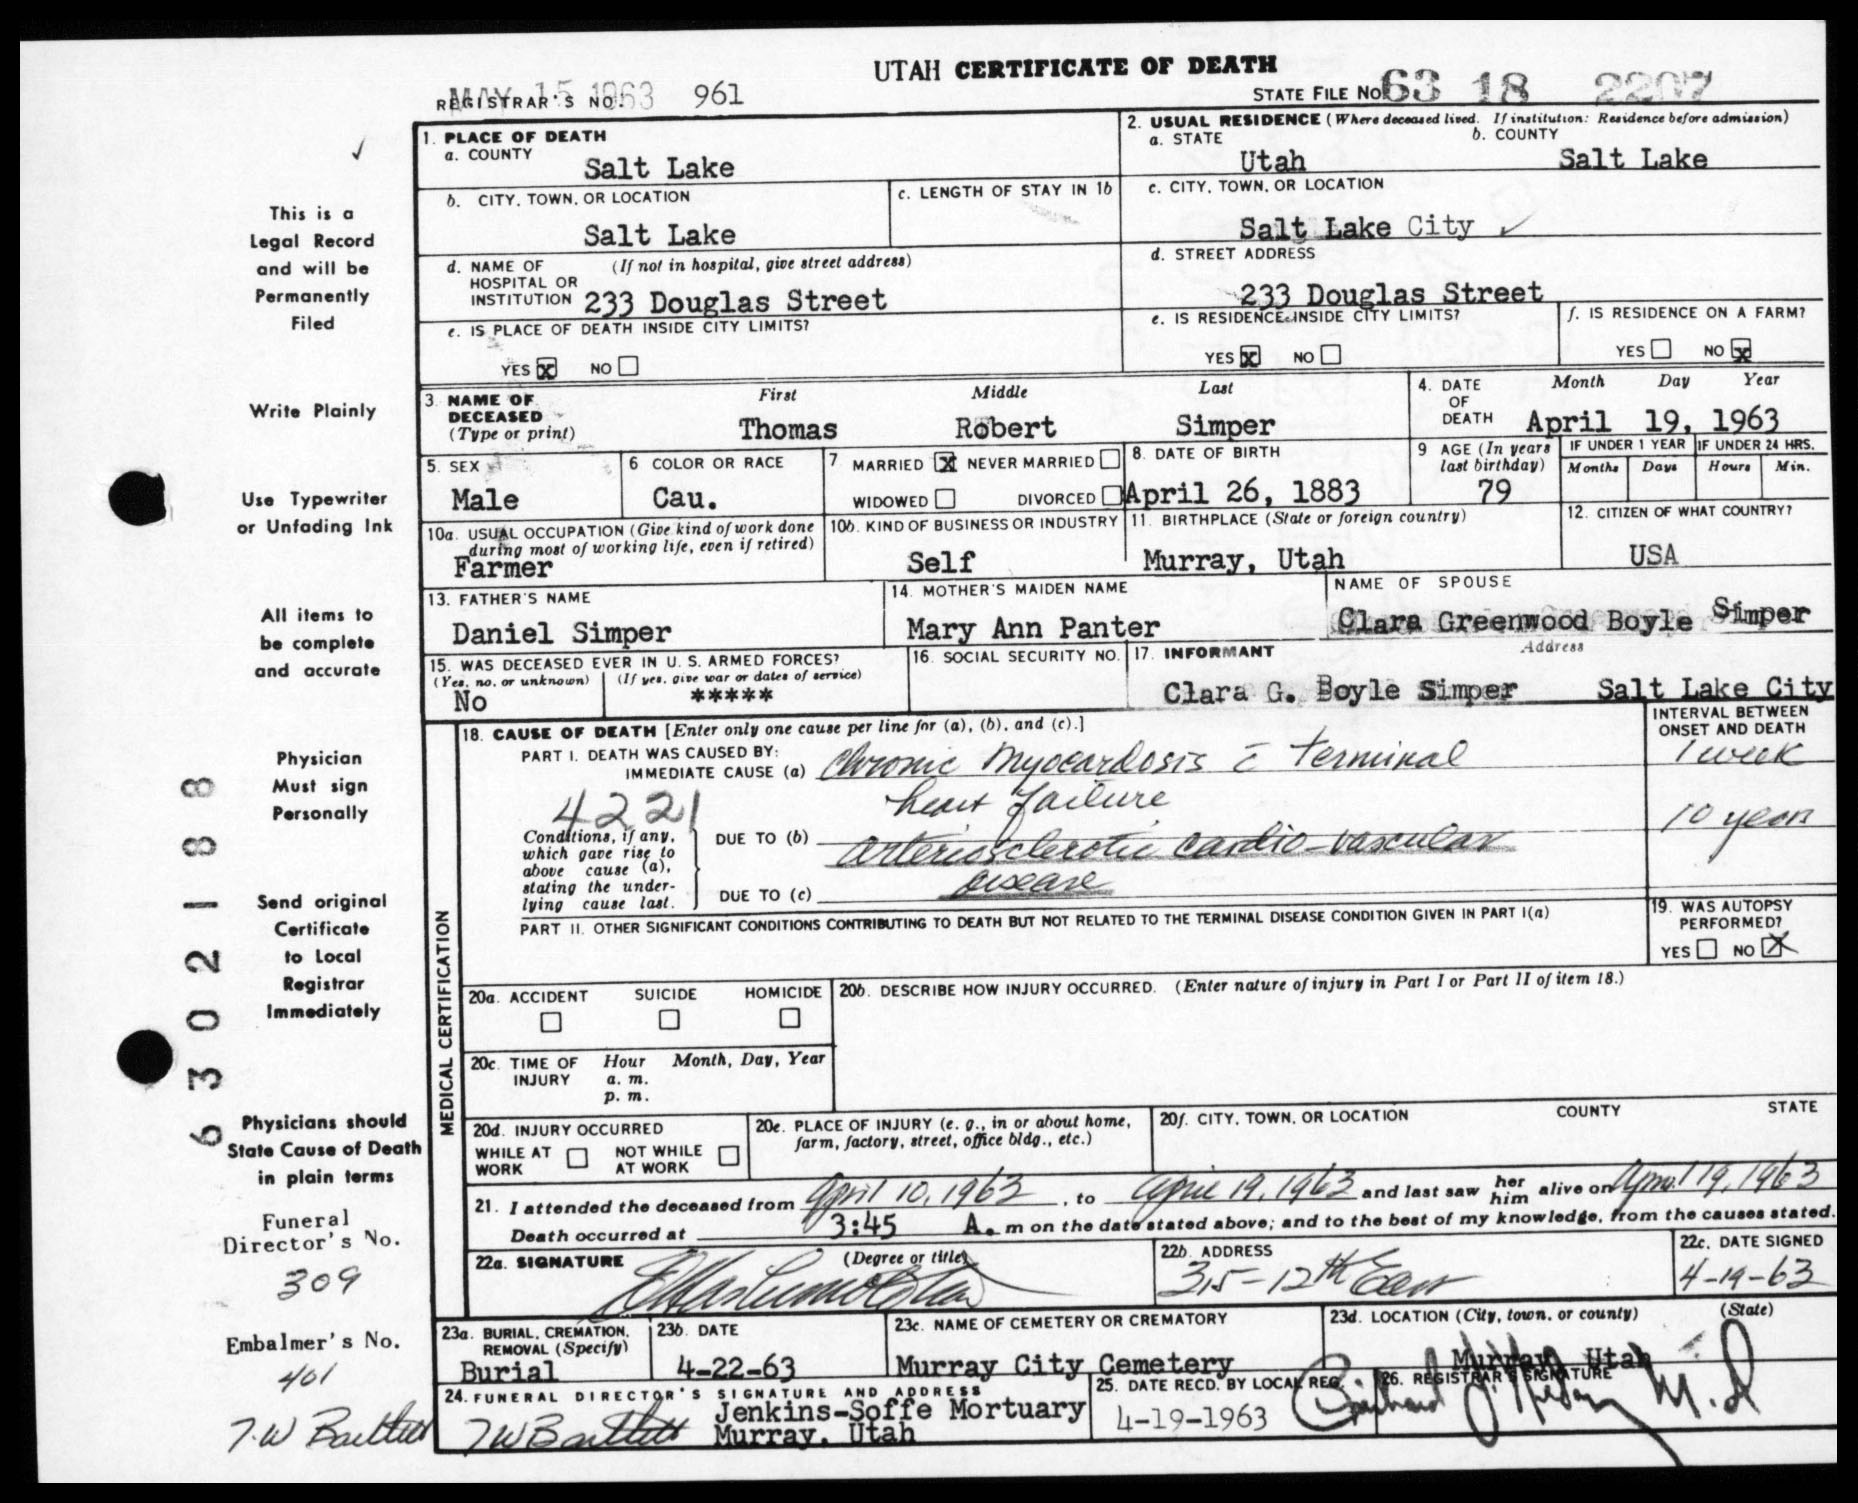 UTAH CERTIFICATE OF DEATH
MAY 15 1963
REGISTRAR'S NO. 961
STATE FILE NO. 63 18 2207
1. PLACE OF DEATH
a. COUNTY
Salt Lake
2. USUAL RESIDENCE (Where deceased lived. If institution: Residence before admission)
a. STATE b. COUNTY
Utah Salt Lake
b. CITY, TOWN, OR LOCATION
Salt Lake
c. LENGTH OF STAY IN 1b
c. CITY, TOWN, OR LOCATION
Salt Lake City
d. NAME OF HOSPITAL OR INSTITUTION (If not in hospital, give street address)
233 Douglas Street
d. STREET ADDRESS
233 Douglas Street
e. IS PLACE OF DEATH INSIDE CITY LIMITS?
YES X NO
e. IS RESIDENCE INSIDE CITY LIMITS?
YES X NO
f. IS RESIDENCE ON A FARM?
YES NO X
3. NAME OF DECEASED (Type or print)
First Middle Last
Thomas Robert Simper
4. DATE OF DEATH
Month Day Year
April 19, 1963
5. SEX
Male
6 COLOR OR RACE
Cau.
7. MARRIED X NEVER MARRIED
WIDOWED DIVORCED
8. DATE OF BIRTH
April 26, 1883
9 AGE (In years last birthday)
79
IF UNDER 1 YEAR
Months Days
IF UNDER 24 HRS.
Hours Min.
10a. USUAL OCCUPATION (Give kind of work done during most of working life, even if retired)
Farmer
10b. KIND OF BUSINESS OR INDUSTRY
Self
11. BIRTHPLACE (State or foreign country)
Murray, Utah
12. CITIZEN OF WHAT COUNTRY?
USA
13. FATHER'S NAME
Daniel Simper
14. MOTHER'S MAIDEN NAME
Mary Ann Panter
NAME OF SPOUSE
Clara Greenwood Boyle Simper
15. WAS DECEASED EVER IN U. S. ARMED FORCES?
(Yes, no, or unknown) (If yes, give war or dates of service)
No *****
16. SOCIAL SECURITY NO.
17. INFORMANT Address
Clara G. Boyle Simper Salt Lake City
18. CAUSE OF DEATH [Enter only one cause per line for (a), (b), and (c).]
INTERVAL BETWEEN ONSET AND DEATH
PART I. DEATH WAS CAUSED BY:
IMMEDIATE CAUSE (a) Chronic Myocardosis c̄ terminal
heart failure
1 week
4221
Conditions, if any, which gave rise to above cause (a), stating the underlying cause last.
DUE TO (b) Arteriosclerotic cardio-vascular
disease
10 years
DUE TO (c)
PART II. OTHER SIGNIFICANT CONDITIONS CONTRIBUTING TO DEATH BUT NOT RELATED TO THE TERMINAL DISEASE CONDITION GIVEN IN PART I(a)
19. WAS AUTOPSY PERFORMED?
YES NO X
MEDICAL CERTIFICATION
20a. ACCIDENT SUICIDE HOMICIDE
20b. DESCRIBE HOW INJURY OCCURRED. (Enter nature of injury in Part I or Part II of item 18.)
20c. TIME OF INJURY Hour Month, Day, Year
a. m.
p. m.
20d. INJURY OCCURRED
WHILE AT WORK NOT WHILE AT WORK
20e. PLACE OF INJURY (e. g., in or about home, farm, factory, street, office bldg., etc.)
20f. CITY, TOWN, OR LOCATION COUNTY STATE
21. I attended the deceased from April 10, 1963, to April 19, 1963 and last saw her him alive on April 19, 1963
Death occurred at 3:45 A. m on the date stated above; and to the best of my knowledge, from the causes stated.
22a. SIGNATURE (Degree or title)
22b. ADDRESS
315-12th East
22c. DATE SIGNED
4-19-63
23a. BURIAL, CREMATION, REMOVAL (Specify)
Burial
23b. DATE
4-22-63
23c. NAME OF CEMETERY OR CREMATORY
Murray City Cemetery
23d. LOCATION (City, town, or county) (State)
Murray, Utah
24. FUNERAL DIRECTOR'S SIGNATURE AND ADDRESS
TW Bartlett
Jenkins-Soffe Mortuary
Murray, Utah
25. DATE RECD. BY LOCAL REG.
4-19-1963
26. REGISTRAR'S SIGNATURE
M.D
This is a
Legal Record
and will be
Permanently
Filed
Write Plainly
Use Typewriter
or Unfading Ink
All items to
be complete
and accurate
Physician
Must sign
Personally
Send original
Certificate
to Local
Registrar
Immediately
Physicians should
State Cause of Death
in plain terms
Funeral
Director's No.
309
Embalmer's No.
401
T.W Bartlett
6302188